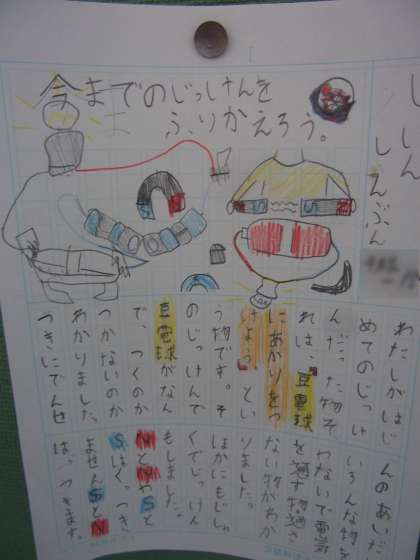 今までのじっけんを
ふりかえろう。
しんぶん
わたしがはじ
めてのじっけ
んだった物そ
れは、豆電球
にあかりをつ
けよう」とい
う物です。そ
のじっけんで
豆電球がなん
で、つくのか
つかないのか
わかりました。
つぎにでんせ
んのあいだ
いろんな物を
つないで電気
を通す物通さ
ない物がわか
りました。
ほかにもじしゃ
くでじっけん
もしました。
NとNやSと
Sはくっつき
ませんSとN
は、つきます。